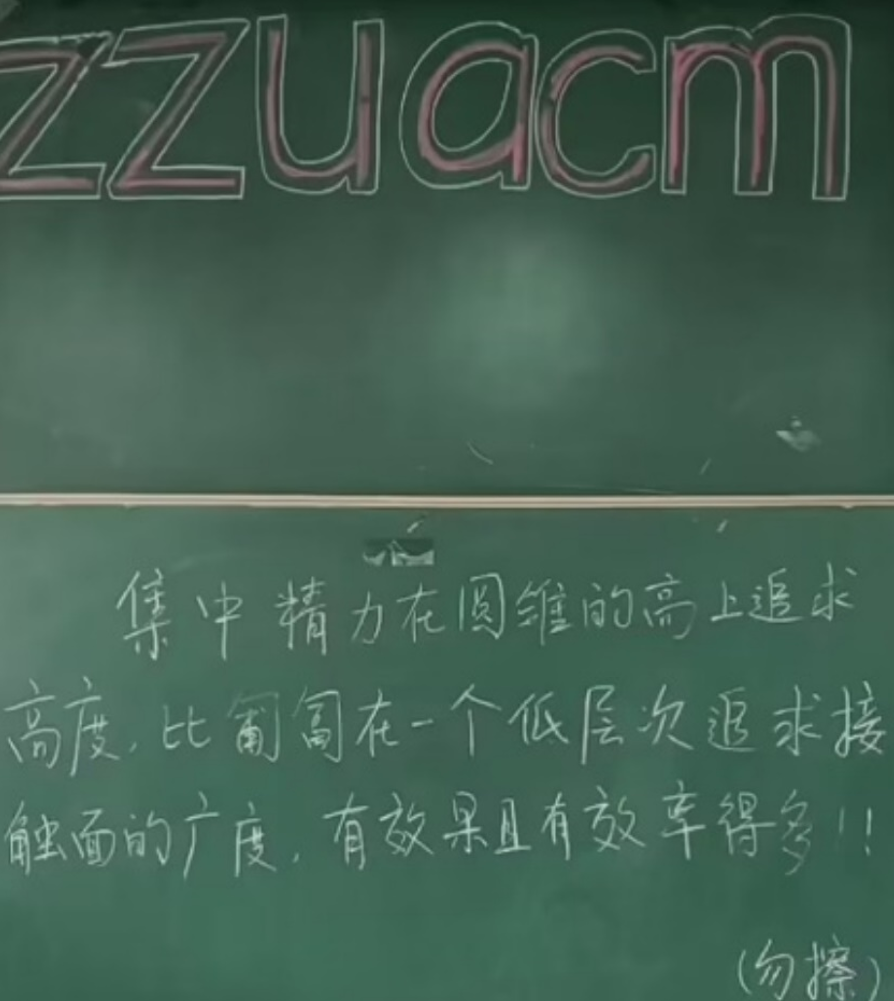 zzuacm
集中精力在圆维的高上追求
高度，比匍匐在一个低层次追求接
触面的广度，有效果且有效率得多！！
（勿擦）